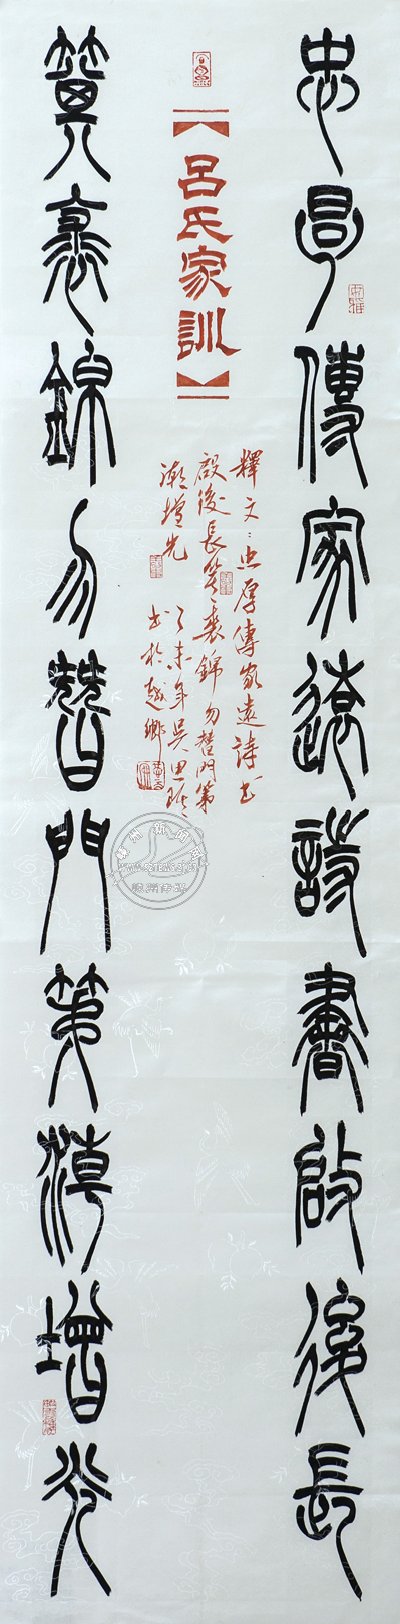 忠厚傳家遠詩書啟後長
【呂氏家訓】
釋文：忠厚傳家遠詩書
啟後長箕裘錦勿替門第
漸增光
乙未年吳思
書於越鄉
箕裘錦勿替門第漸增光